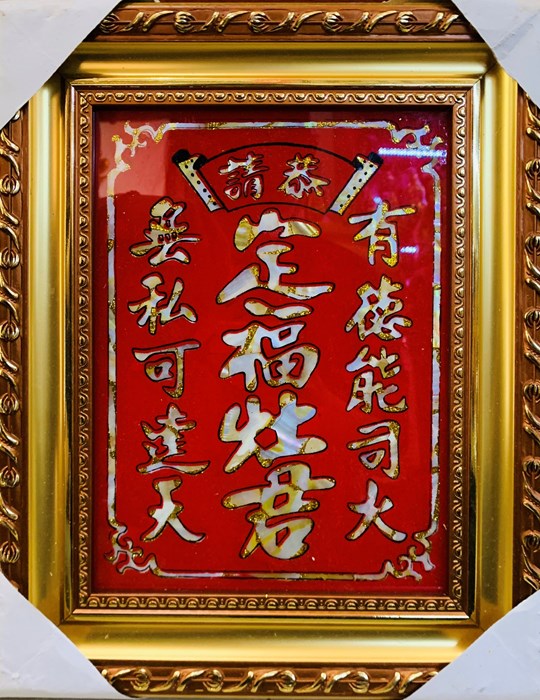 恭請
有德能司火
定福灶君
無私可達天